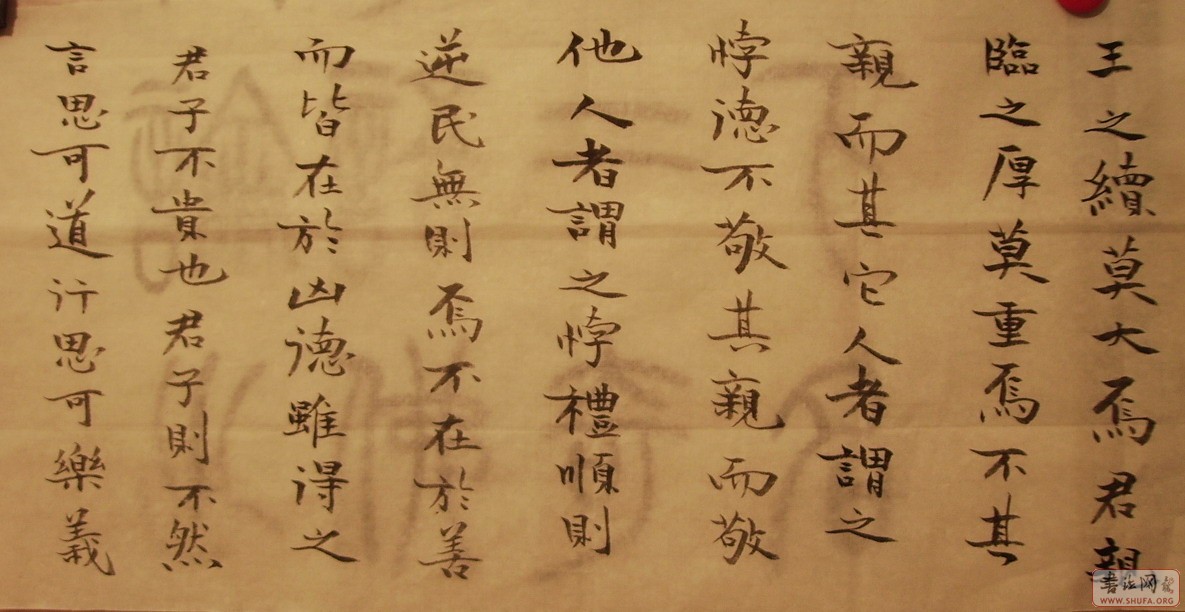 王之續莫大焉君親
臨之厚莫重焉不其
親而其它人者謂之
悖德不敬其親而敬
他人者謂之悖禮順則
逆民無則焉不在於善
而皆在於凶德雖得之
君子不貴也君子則不然
言思可道行思可樂義
书法网
WWW.SHUFA.ORG